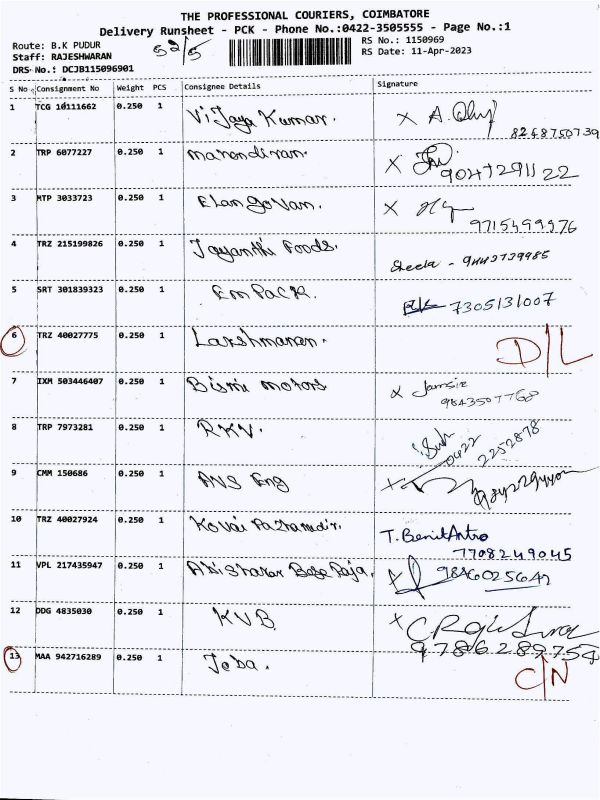 THE PROFESSIONAL COURIERS, COIMBATORE
Delivery Runsheet - PCK - Phone No.:0422-3505555 - Page No.:1
Route: B.K PUDUR 52/5 RS No.: 1150969
Staff: RAJESHWARAN RS Date: 11-Apr-2023
DRS No.: DCJB115096901
S No Consignment No Weight PCS Consignee Details Signature
1 TCG 10111662 0.250 1 Vijaya Kumar. X A.
8268750739
2 TRP 6077227 0.250 1 Marendiran. X
9047291122
3 MTP 3033723 0.250 1 Elangovan. X
9715499976
4 TRZ 215199826 0.250 1 Jayanthi Foods. Sheela - 9442739985
5 SRT 301839323 0.250 1 Em Pack. 7305131007
6 TRZ 40027775 0.250 1 Larshmanan. D/L
7 IXM 503446407 0.250 1 Bismi Motors X Jamsir
9843507768
8 TRP 7973281 0.250 1 RKV. 0422
2252878
9 CMM 150686 0.250 1 ANS Eng X
10 TRZ 40027924 0.250 1 Kovai Pazhamudir. T. Benit Antro
7708249045
11 VPL 217435947 0.250 1 Raja. X 9846025642
12 DDG 4835030 0.250 1 KVB X
9786289754
13 MAA 942716289 0.250 1 Jeba. C/N